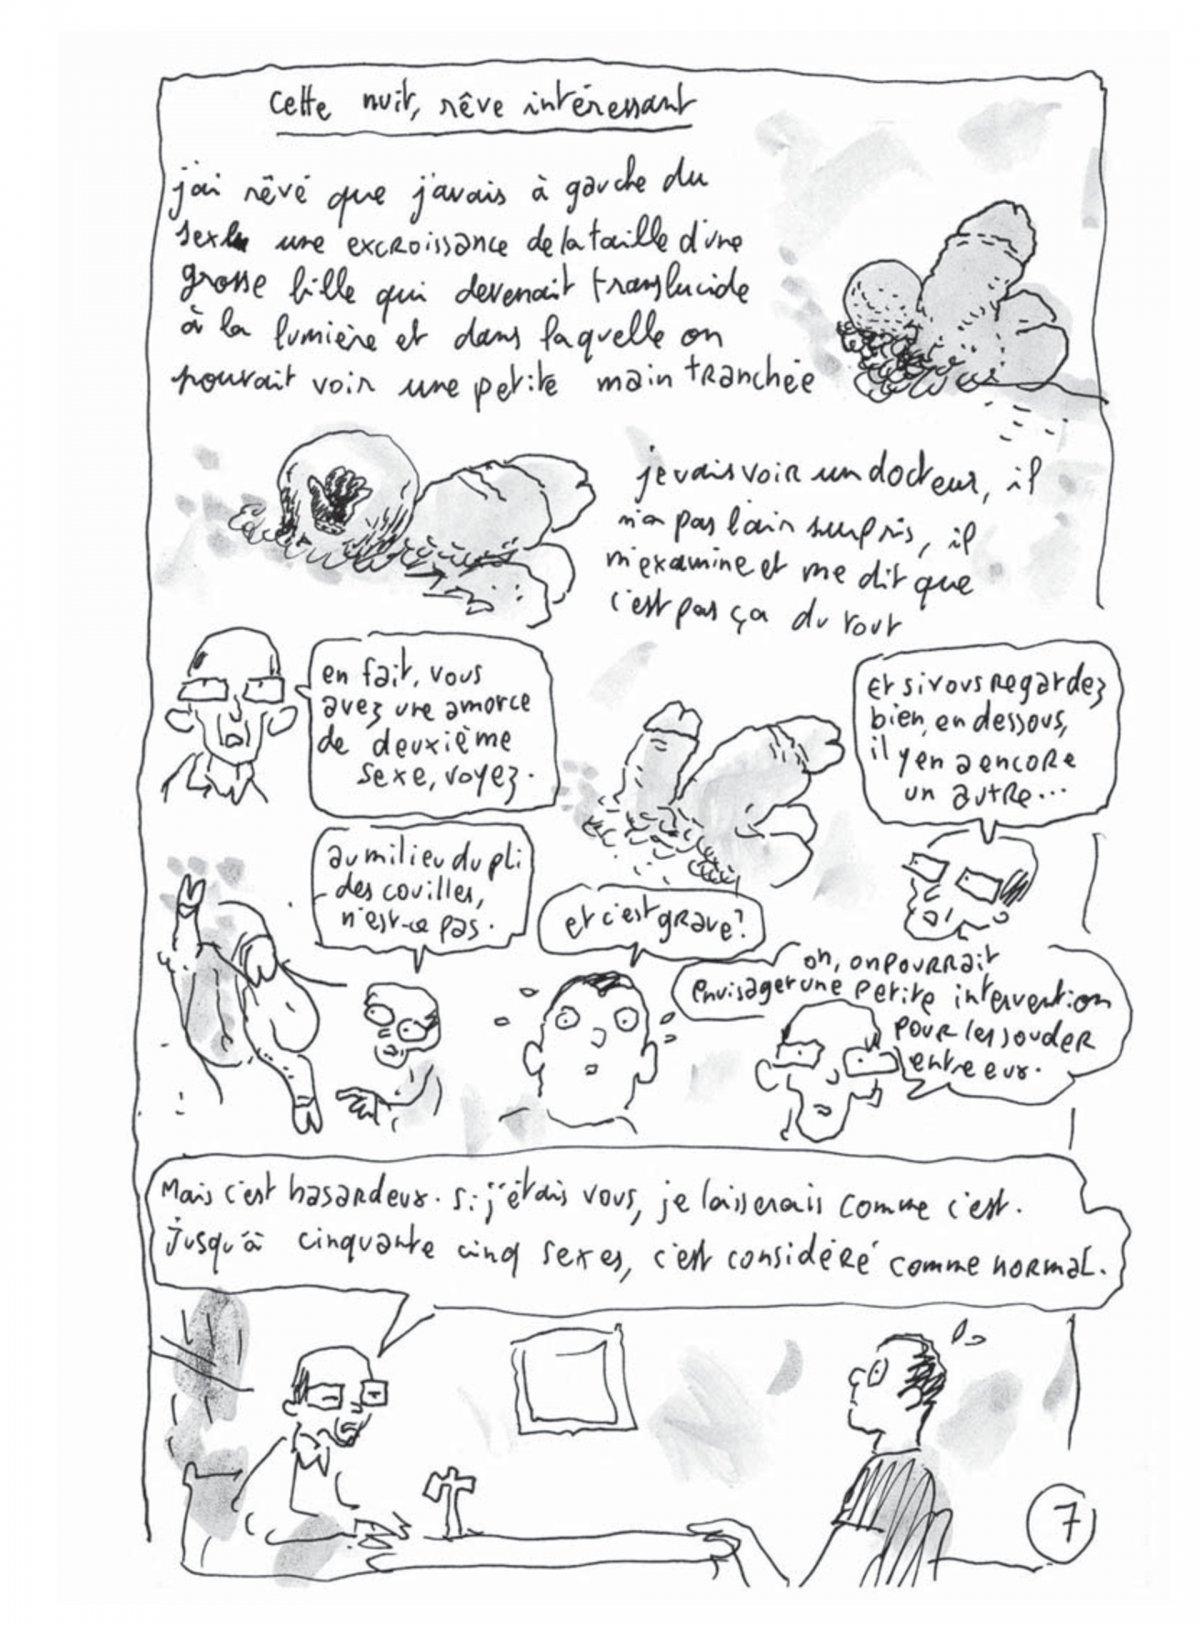 cette nuit, rêve intéressant
j'ai rêvé que j'avais à gauche du
sexe une excroissance de la taille d'une
grosse bille qui devenait translucide
à la lumière et dans laquelle on
pouvait voir une petite main tranchée
je vais voir un docteur, il
n'a pas l'air surpris, il
m'examine et me dit que
c'est pas ça du tout
en fait, vous
avez une amorce
de deuxième
sexe, voyez.
et si vous regardez
bien, en dessous,
il y en a encore
un autre...
au milieu du pli
des couilles,
n'est-ce pas.
et c'est grave?
on, on pourrait
envisager une petite intervention
pour les souder
entre eux.
Mais c'est hasardeux. Si j'étais vous, je laisserais comme c'est.
jusqu'à cinquante cinq sexes, c'est considéré comme normal.
7